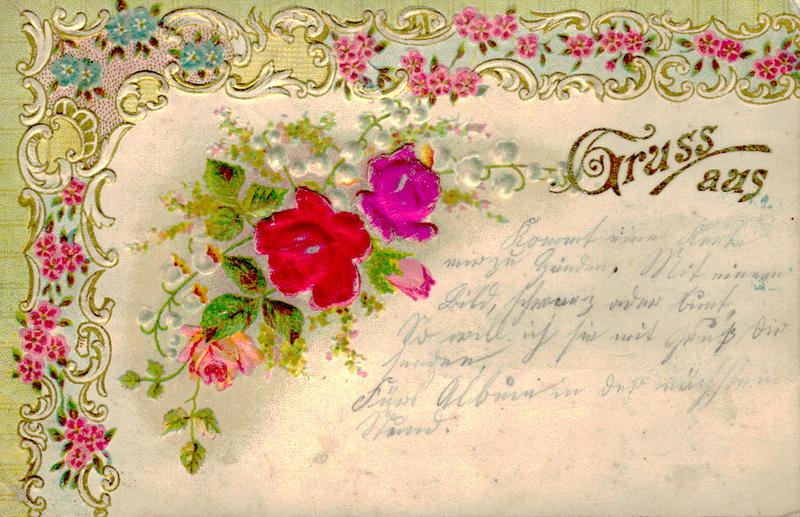 Gruss
aus
Kommt eine Karte
mir zu Händen. Mit einem
Bild, schwarz oder bunt,
So will ich sie mit Gruß dir
senden,
Fürs Album in der nächsten
Stund.